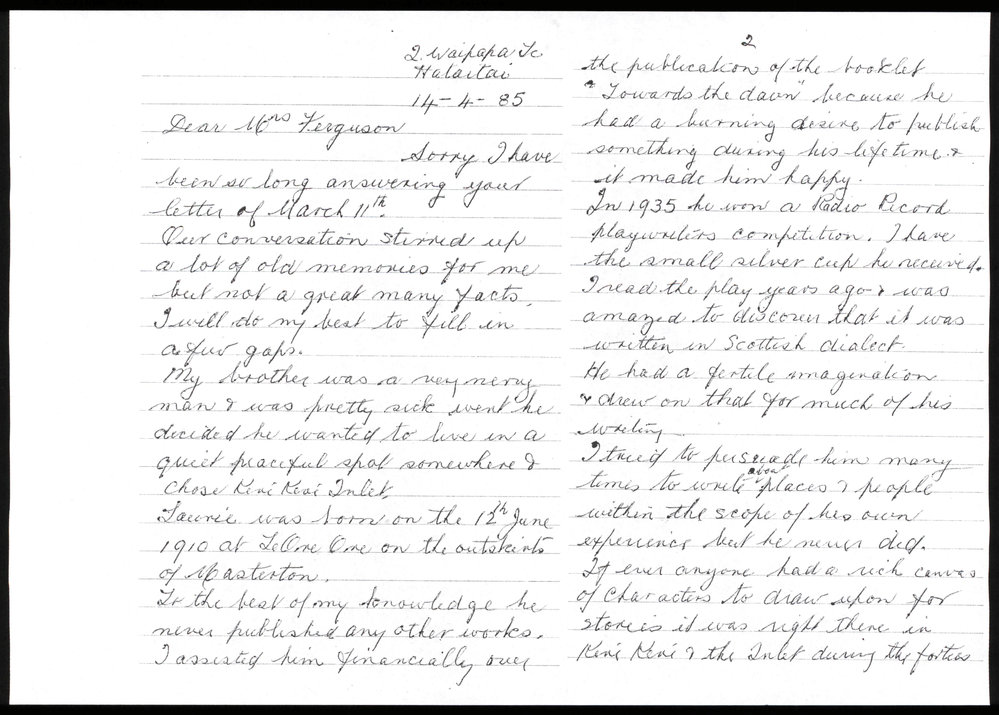 2 Waipapa Tc
Hataitai
14-4-85
Dear Mrs Ferguson
Sorry I have
been so long answering your
letter of March 11th.
Our conversation stirred up
a lot of old memories for me
but not a great many facts.
I will do my best to fill in
a few gaps.
My brother was a very nervy
man & was pretty sick went he
decided he wanted to live in a
quiet peaceful spot somewhere &
chose Keri Keri Inlet.
Laurie was born on the 12th June
1910 at Te Ore Ore on the outskirts
of Masterton.
To the best of my knowledge he
never published any other works.
I assisted him financially over
2
the publication of the booklet
"Towards the dawn" because he
had a burning desire to publish
something during his lifetime &
it made him happy.
In 1935 he won a Radio Record
playwriters competition. I have
the small silver cup he received.
I read the play years ago & was
amazed to discover that it was
written in Scottish dialect.
He had a fertile imagination
& drew on that for much of his
writing
I tried to persuade him many
times to write about places & people
within the scope of his own
experience but he never did.
If ever anyone had a rich canvas
of characters to draw upon for
stories it was right there in
Keri Keri & the Inlet during the forties